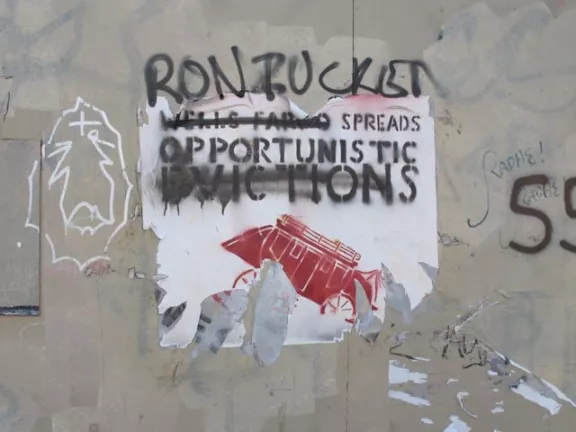 RON
WELLS FARGO SPREADS
OPPORTUNISTIC
EVICTIONS
55